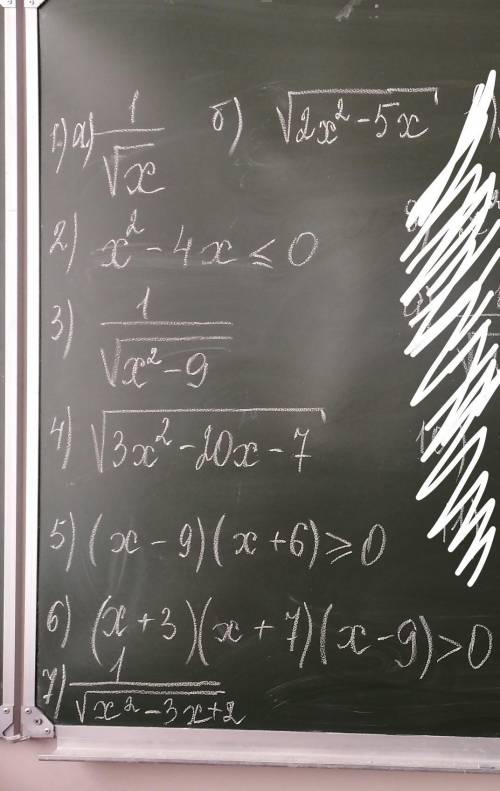 1) а) 1/√x б) √(2x² - 5x)
2) x² - 4x ≤ 0
3) 1/√(x² - 9)
4) √(3x² - 20x - 7)
5) (x - 9)(x + 6) ≥ 0
6) (x + 3)(x + 7)(x - 9) > 0
7) 1/√(x² - 3x + 2)